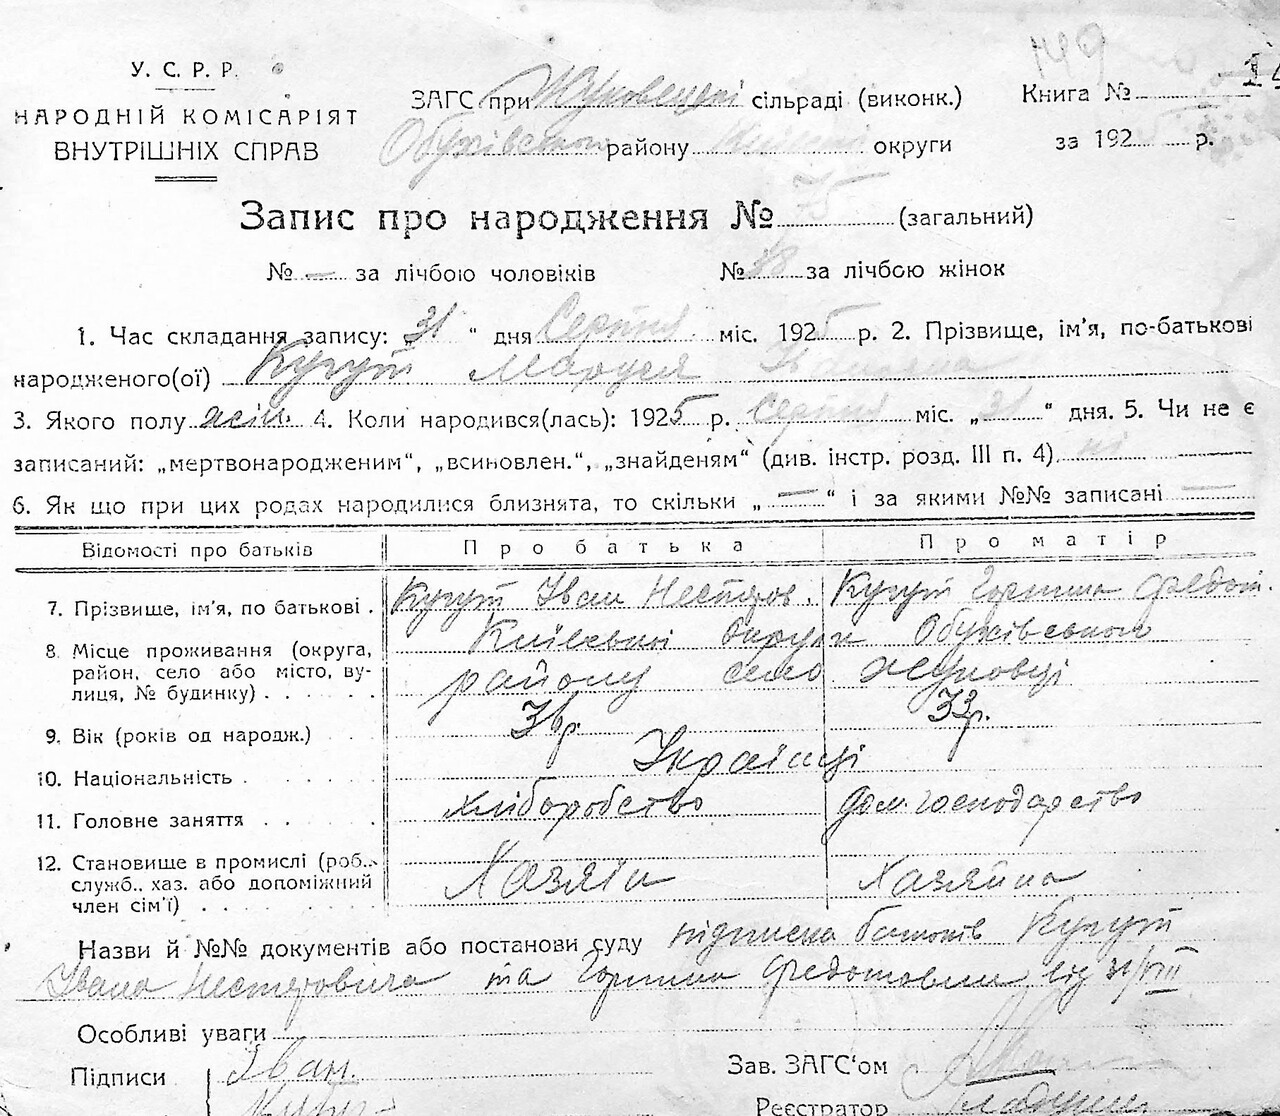 149
14
У. С. Р. Р.
НАРОДНІЙ КОМІСАРІЯТ
ВНУТРІШНІХ СПРАВ
ЗАГС при Жуковецькі сільраді (виконк.)
Книга №
Обухівського району Київської округи
за 1925 р.
Запис про народження № 75 (загальний)
№ — за лічбою чоловіків № 38 за лічбою жінок
1. Час складання запису: „31“ дня Серпня міс. 1925 р. 2. Прізвище, ім'я, по-батькові
народженого(ої) Кугут Маруся Іванівна
3. Якого полу жін. 4. Коли народився(лась): 1925 р. Серпня міс. „31“ дня. 5. Чи не є
записаний: „мертвонародженим“, „всиновлен.“, „знайденям“ (див. інстр. розд. III п. 4) ні
6. Як що при цих родах народилися близнята, то скільки „—“ і за якими №№ записані —
Відомості про батьків Про батька Про матір
7. Прізвище, ім'я, по батькові . Кугут Іван Нестеров. Кугут Горпина Федот.
8. Місце проживання (округа, Київської округи Обухівського
район, село або місто, ву- району село Жуковці
лиця, № будинку) . . . . . .
9. Вік (років од народж.) . . . 36р. 33р.
10. Національність . . . . . . . Українці
11. Головне заняття . . . . . хліборобство дом. господарство
12. Становище в промислі (роб., Хазяїн Хазяйка
служб., хаз. або допоміжний
член сім'ї) . . . . . . . . .
Назви й №№ документів або постанови суду підписка батьків Кугут
Івана Нестеровича та Горпини Федотовни від 31/VIII
Особливі уваги
Підписи Іван
Зав. ЗАГС'ом
Реєстратор